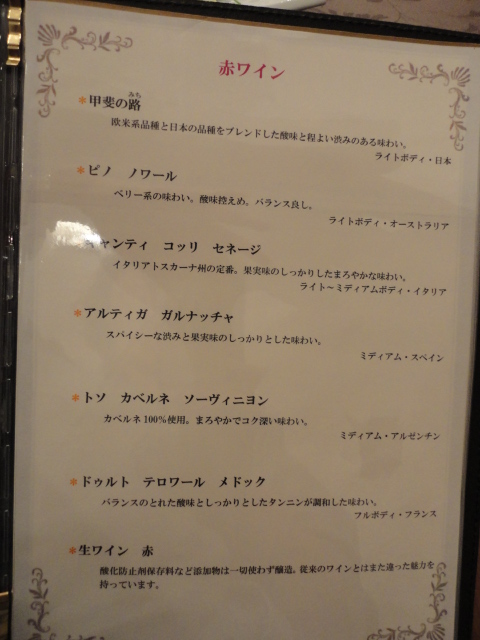 赤ワイン
みち
*甲斐の路
欧米系品種と日本の品種をブレンドした酸味と程よい渋みのある味わい。
ライトボディ・日本
*ピノ ノワール
ベリー系の味わい。酸味控えめ。バランス良し。
ライトボディ・オーストラリア
ャンティ コッリ セネージ
イタリアトスカーナ州の定番。果実味のしっかりしたまろやかな味わい。
ライト～ミディアムボディ・イタリア
*アルティガ ガルナッチャ
スパイシーな渋みと果実味のしっかりとした味わい。
ミディアム・スペイン
*トソ カベルネ ソーヴィニヨン
カベルネ100%使用。まろやかでコク深い味わい。
ミディアム・アルゼンチン
*ドゥルト テロワール メドック
バランスのとれた酸味としっかりとしたタンニンが調和した味わい。
フルボディ・フランス
*生ワイン 赤
酸化防止剤保存料など添加物は一切使わず醸造。従来のワインとはまた違った魅力を
持っています。